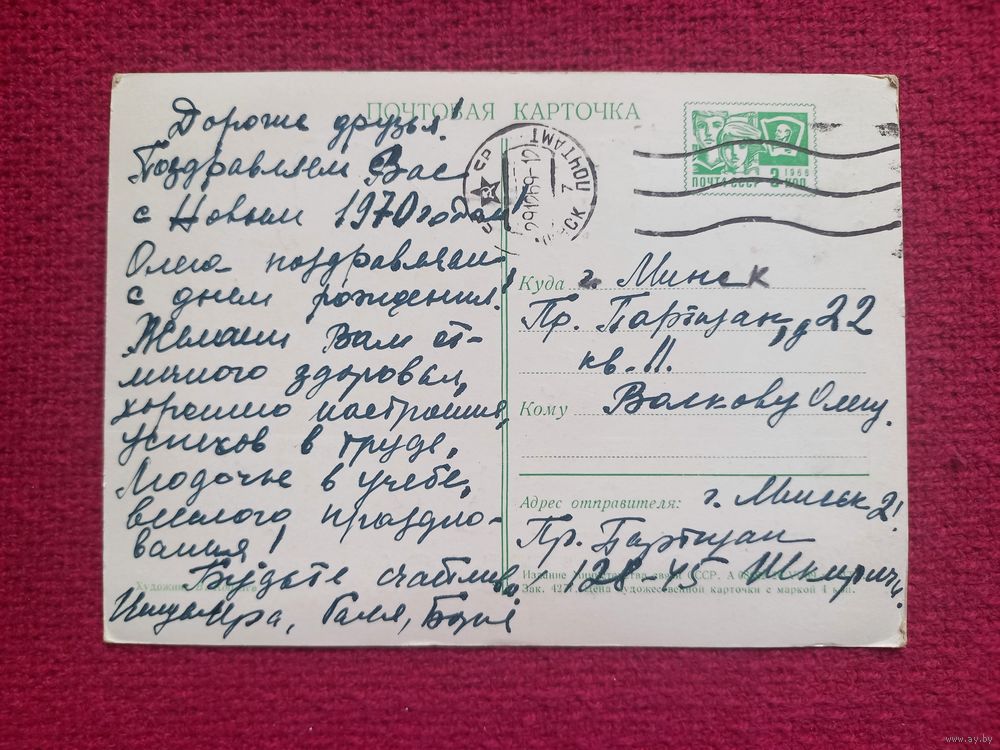 ПОЧТОВАЯ КАРТОЧКА
Дорогие друзья!
Поздравляем Вас
с Новым 1970 годом!
Олега поздравляем
с днем рождения!
Желаем Вам от-
личного здоровья,
хорошего настроения,
успехов в труде,
Людочке в учебе,
веселого праздно-
вания!
Будьте счастливы.
Галя, Боря
ПОЧТА СССР 3 КОП
1966
ПОЧТАМТ
29 12 69-12
Куда г. Минск
Пр. Партизан, д 22
кв. 11.
Кому Волкову Олегу.
Адрес отправителя: г. Минск 21
Пр. Партизан
128 45
Издание Министерства связи СССР. А
Зак. 427 Цена художественной карточки с маркой 4 коп.
Художник
www.ay.by